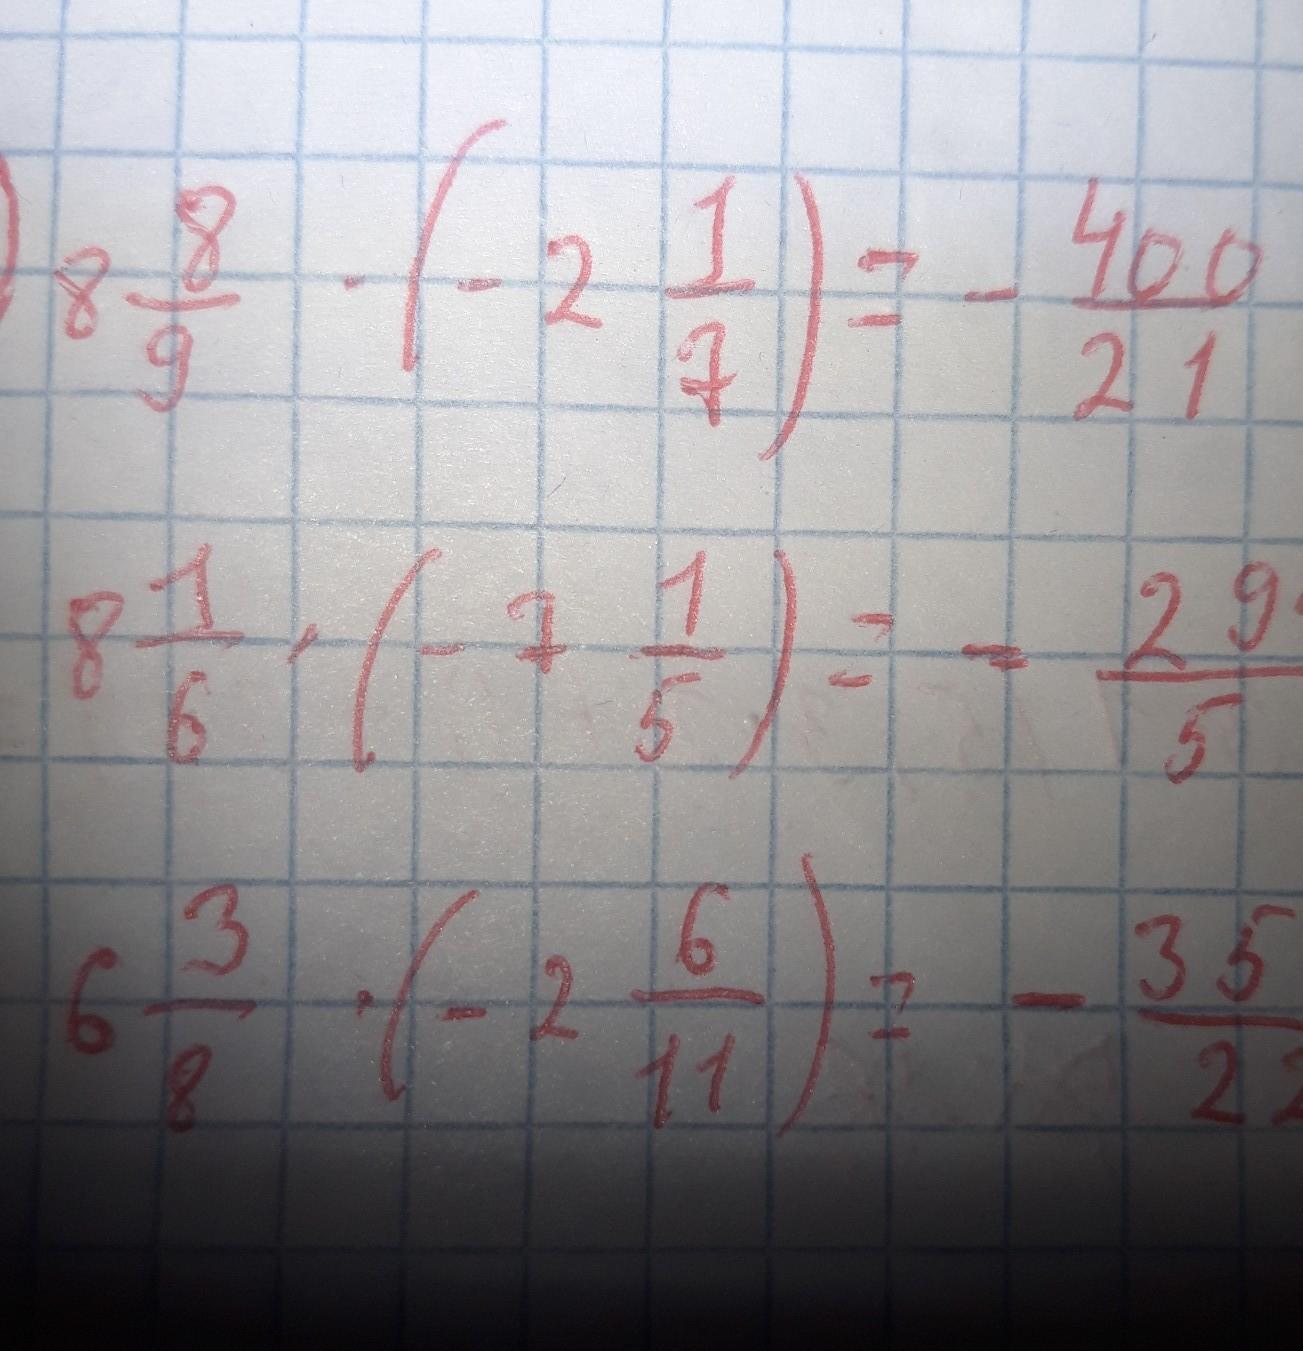 ) 8 8/9 · (- 2 1/7) = - 400/21
8 1/6 · (- 7 1/5) = - 29/5
6 3/8 · (- 2 6/11) = - 35/22